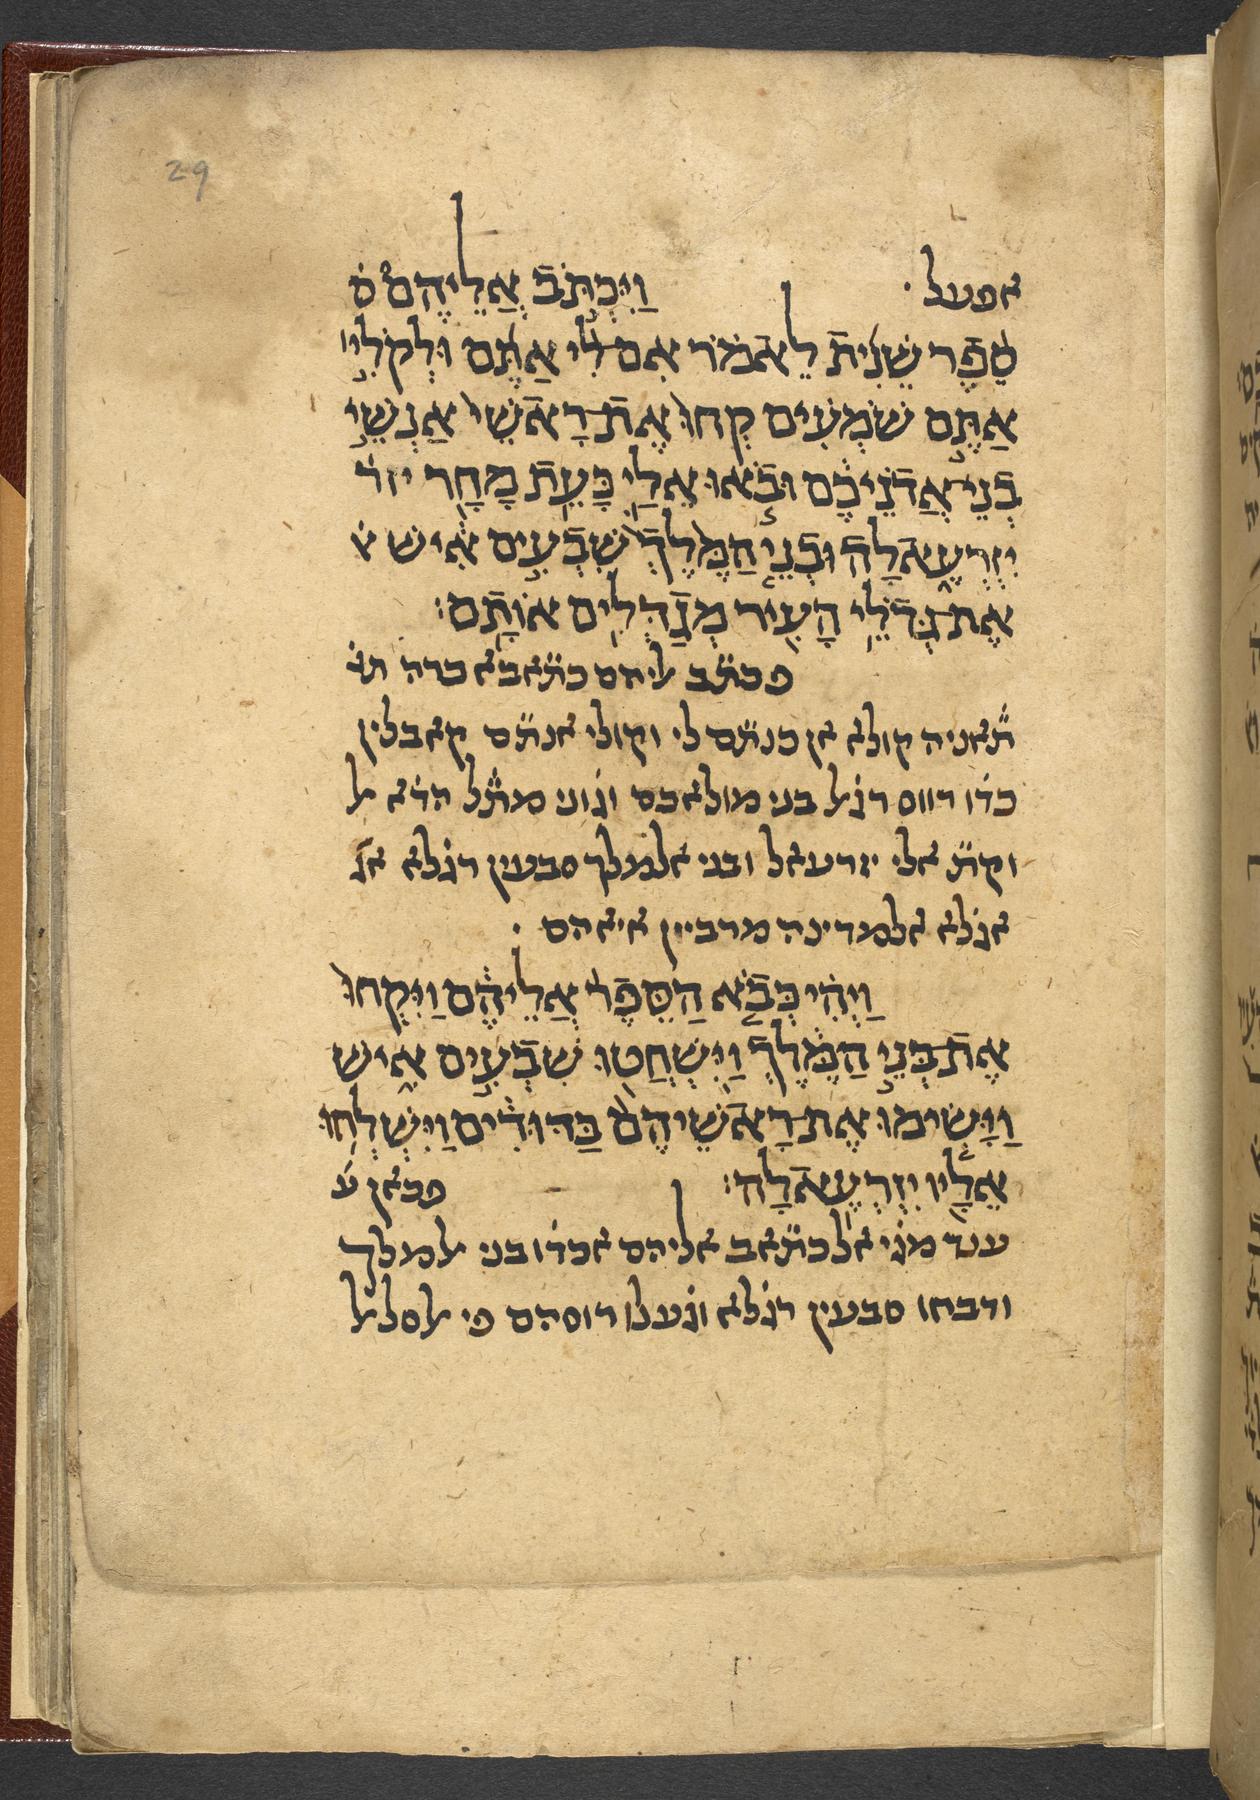 29
אפעל · וַיִּכְתֹּב אֲלֵיהֶם ס
סֵפֶר שֵׁנִית לֵאמֹר אִם לִי אַתֶּם וּלְקֹלִי
אַתֶּם שֹׁמְעִים קְחוּ אֶת רָאשֵׁי אַנְשֵׁי
בְנֵי אֲדֹנֵיכֶם וּבֹאוּ אֵלַי כָּעֵת מָחָר יזר
יִזְרְעֶאלָה וּבְנֵי הַמֶּלֶךְ שִׁבְעִים אִישׁ א
אֶת גְּדֹלֵי הָעִיר מְגַדְּלִים אוֹתָם:
פכתב ליהם כתאבא כרה תו
תֺאניה קולא אן כנתם לי וקולי אנתם קאבלין
כדֺו רווס רגֺאל בני מולאכם וגֺוני מתֺל הדֺא אל
וקת אלי יזרעאל ובני אלמלך סבעין רגֺלא אגֺ
אגֺלא אלמדינה מרביין איאהם ·
וַיְהִי כְּבֹא הַסֵּפֶר אֲלֵיהֶם וַיִּקְחוּ
אֶת בְּנֵי הַמֶּלֶךְ וַיִּשְׁחֲטוּ שִׁבְעִים אִישׁ
וַיָּשִׂימוּ אֶת רָאשֵׁיהֶם בַּדּוּדִים וַיִּשְׁלְחוּ
אֵלָיו יִזְרְעֶאלָה: פכאן ע
ענד מגֺי אלכתאב אליהם אכדֺו בני אלמלך
ודבחו סבעין רגֺלא וגֺעלו רוסהם פי אלסלאל